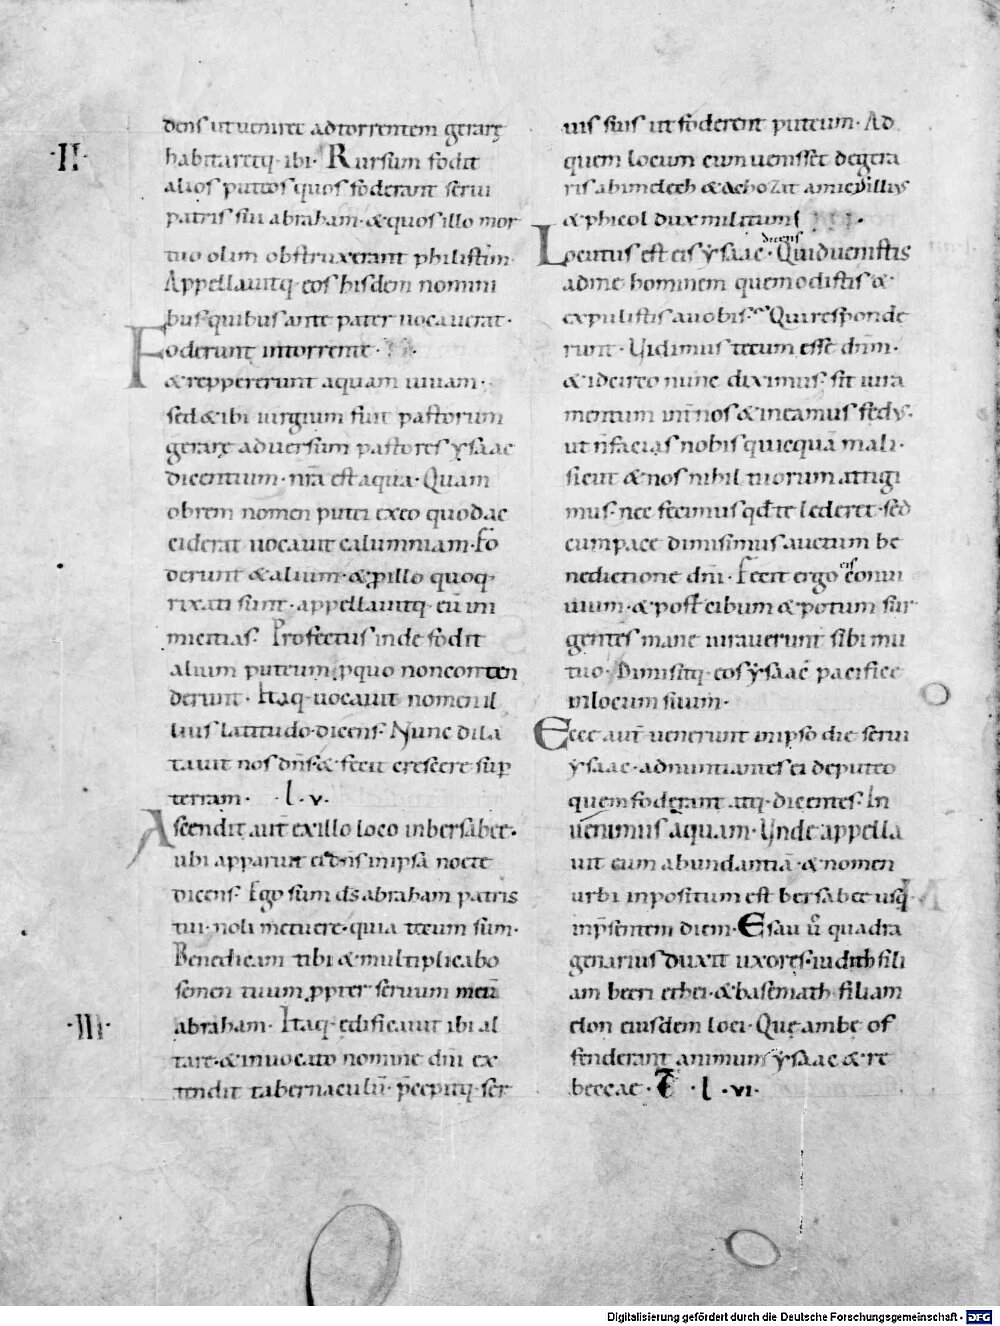 ·II·
dens ut ueniret ad torrentem gerarę
habitaretq· ibi· Rursum fodit
alios puteos quos foderant serui
patris sui abraham· & quos illo mor
tuo olim obstruxerant philistim·
Appellauitq· eos hisdem nomini
bus quibus ante pater uocauerat·
Foderunt in torrente·
& reppererunt aquam uiuam·
sed & ibi iurgium fuit pastorum
gerarę aduersum pastores ysaac
dicentium· nr̄a est aqua· Quam
obrem nomen putei ex eo quod ac
ciderat uocauit calumniam· Fo
derunt & alium· & ꝓ illo quoq·
rixati sunt· appellauitq· eū ini
micitias· Profectus inde fodit
alium puteum, ꝓ quo non conten
derunt· Itaq· uocauit nomen il
lius latitudo· dicens· Nunc dila
tauit nos dn̄s· & fecit crescere sup̄
terram· ·l·v·
Ascendit aut̄ ex illo loco in bersabee·
ubi apparuit ei dn̄s in ipsa nocte
dicens· Ego sum ds̄ abraham patris
tui· noli metuere· quia tecum sum·
Benedicam tibi & multiplicabo
semen tuum ꝓpter seruum meū
·III·
abraham· Itaq· edificauit ibi al
tare· & inuocato nomine dn̄i ex
tendit tabernaculū· p̄cepitq· ser
uis suis ut foderent puteum· Ad
quem locum cum uenisset de gera
ris abimelech & ochozat amic illius
& phicol dux militum
Locutus est eis ysaac· dicens Quid uenistis
ad me hominem quem odistis &
expulistis a uobis· Qui responde
runt· Uidimus tecum esse dn̄m·
& idcirco nunc diximus· sit iura
mentum int̄ nos & ineamus fedus·
ut n̄ facias nobis quicquā mali·
sicut & nos nihil tuorum attigi
mus· nec fecimus qd̄ te lederet· sed
cum pace dimisimus auctum be
nedictione dn̄i· Fecit ergo eis conui
uium· & post cibum & potum sur
gentes mane iurauerunt sibi mu
tuo· Dimisitq· eos ysaac pacifice
in locum suum·
Ecce aut̄ uenerunt in ipso die serui
ysaac· adnuntiantes ei de puteo
quem foderant· atq· dicentes· In
uenimus aquam· Unde appella
uit eum abundantiā· & nomen
urbi inpositum est bersabee usq·
in p̄sentem diem· Esau u̅o quadra
genarius duxit uxores· iudith fili
am beeri ethei· & basemath filiam
elon eiusdem loci· Quę ambę of
fenderant animum ysaac & re
beccae· ·l·vi·
Digitalisierung gefördert durch die Deutsche Forschungsgemeinschaft - DFG